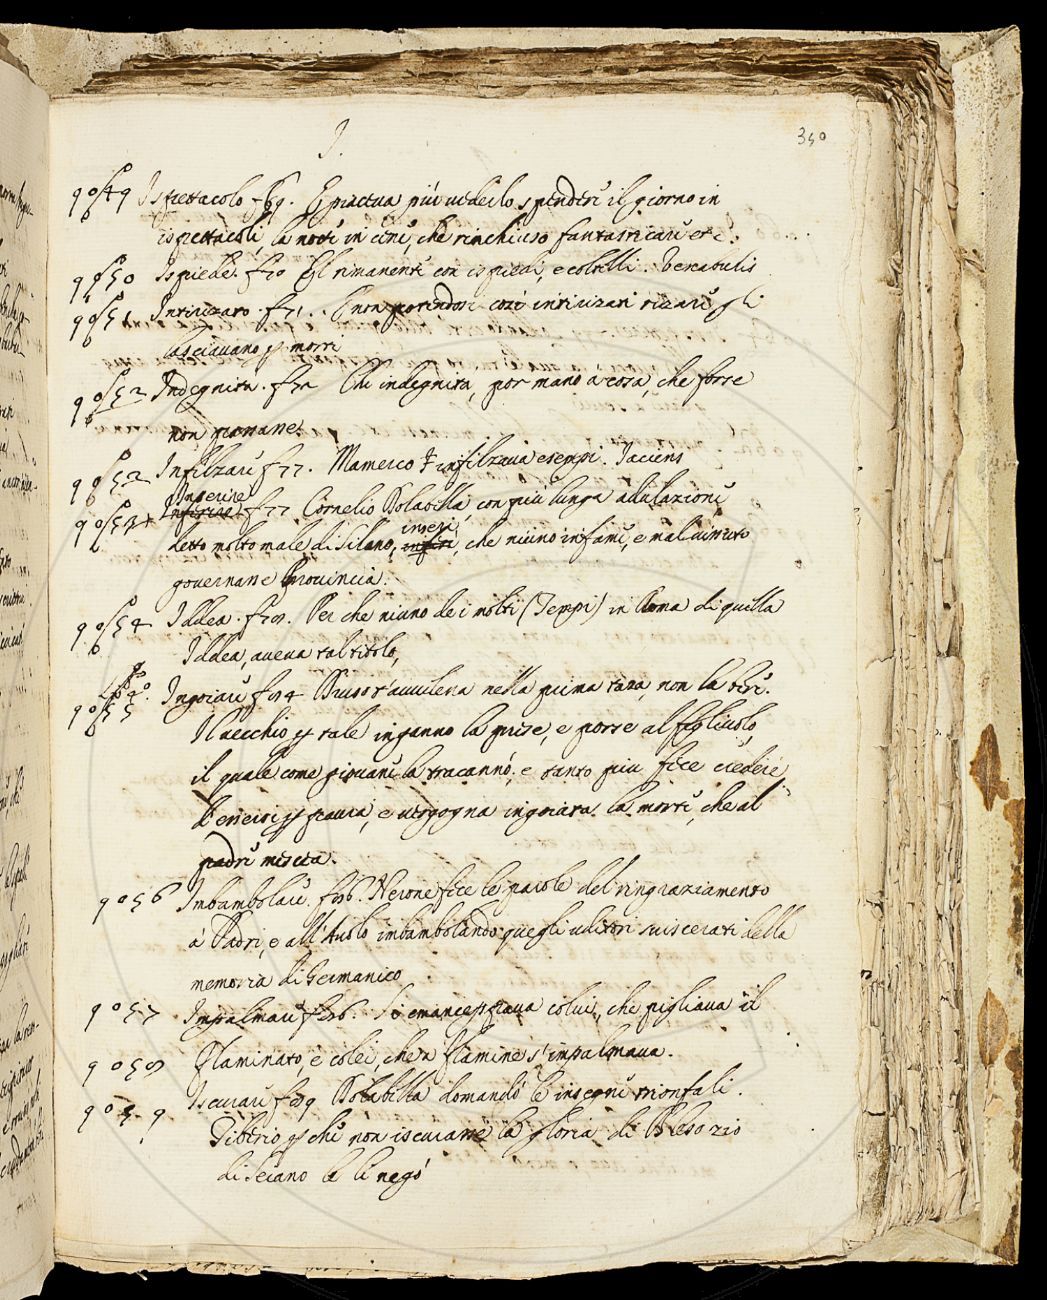 I.
350
9049 Ispettacolo f 69. E pareva più vederlo spendere il giorno in
ispettacoli, la notte in cene, che rinchiuso fantasticare etc.
9050 Ispiede. f 70 Gl rimanenti con ispiedi, e coltelli. Vercubulis
9051 Intirizato. f 71. E non potendosi così intirizati rizare gli
lasciavano p morti
9052 Indegnità. f 72 Chi indegnità, por mano a cosa, che forse
non giovasse.
9052 Infilzare f 77. Mamerco infilzava esempi. Jaciens
Inserire
9053 Inferire f 77 Cornelio Dolabella, con più lunga adulazione
inserì
detto molto male di Silano, inferì, che niuno infame, e mal vivuto
governasse Provincia.
9054 Iddea. f 78. Per che niuno de i molti (Tempi) in Roma di quella
Iddea, aveva tal titolo,
9055 Ingoiare f 84 Druso s'avvelena nella prima taza, non la bere.
Il vecchio p tale inganno la prese, e porse al figliuolo,
il quale come giovane la tracannò; e tanto più fece credere,
D'essersi p paura, e vergogna ingoiata la morte, che al
padre mesceva.
9056 Imbambolare. f 86. Nerone fece le parole del ringraziamento
a' Padri, e all'Avolo imbambolando quegli uditori sviscerati della
memoria di Germanico
9057 Impalmare f 86. Si emancippava colui, che pigliava il
9058 Flaminato, e colei, che a Flamine s'impalmava.
9059 Iscurare f 89 Dolabella domandò le insegne trionfali.
Tiberio p che non iscurasse la gloria di Bleso zio
di Seiano le li negò